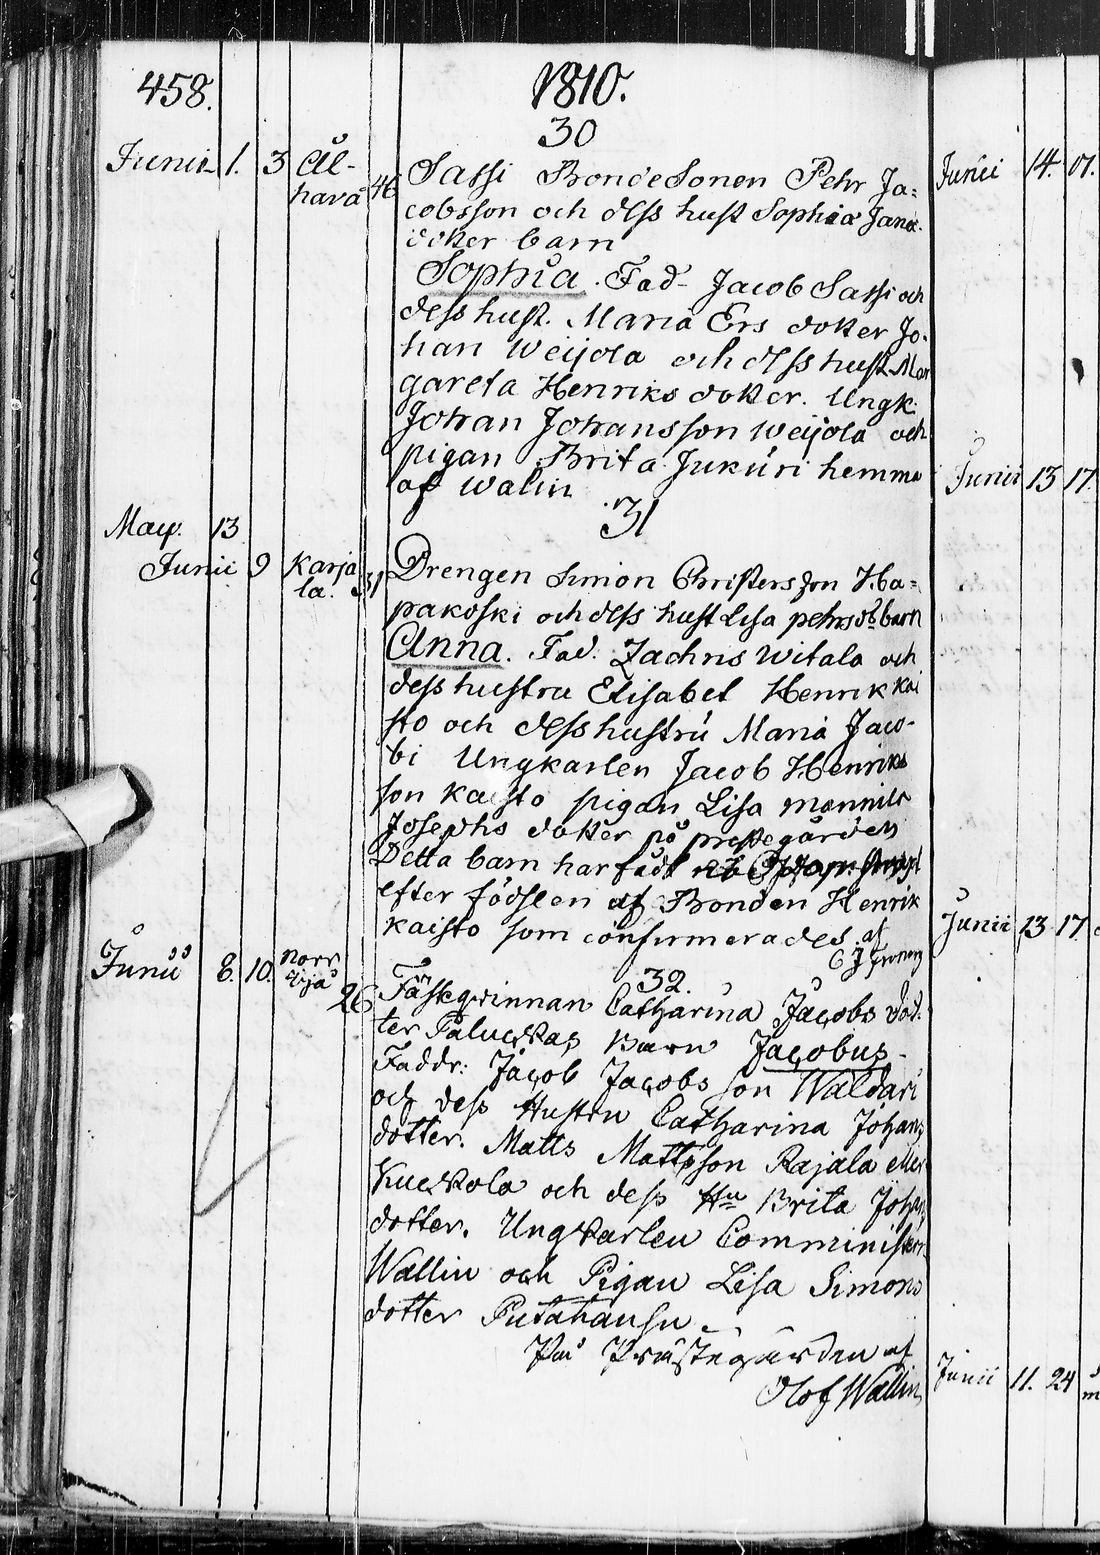 458.
1810.
30
Junii 1. 3 Ål-
hava 46
Sassi Bonde Sonen Pehr Ja=
cobsson och dess hust Sophia Jans.
dotter barn
Sophia. Fad- Jacob Sassi och
dess hust. Maria Ers dotter Jo.
han Weijola och dess hust Mar
gareta Henriks dotter. Ungk
Johan Johansson Weijola och
pigan Brita Jukuri hemma
af Walin
31
May. 13
Junii 9 Karja
la. 31
Drengen Simon Christersson Ha=
pakoski och dess hust Lisa pehrs dr barn
Anna. Fad. Zachris Witala och
dess hustru Elisabet Henrik Kai
sto och dess hustru Maria Jaco-
bi Ungkarlen Jacob Henriks
son Kaisto pigan Lisa Mannila
Josephs dotter på prestegården
Detta barn har fådt
efter födslen af Bonden Henrik
Kaisto som confirmerades. af
32.
Junii 8. 10. Norr
26
Fästeqvinnan Catharina Jacobs dot.
ter Paluckas Barn Jacobus-
Faddr: Jacob Jacobs son Waldari
och dess Hustru Catharina Johans
dotter. Matts Mattsson Rajala
Kuckola och dess Hu Brita Johans
dotter. Ungkarlen Comminister
Wallin och Pigan Lisa Simons
dotter Putahansu.
På Prästegården af
Olof Wallin
Junii 14. 01.
Junii 13 17.
Junii 13 17.
Junii 11. 24